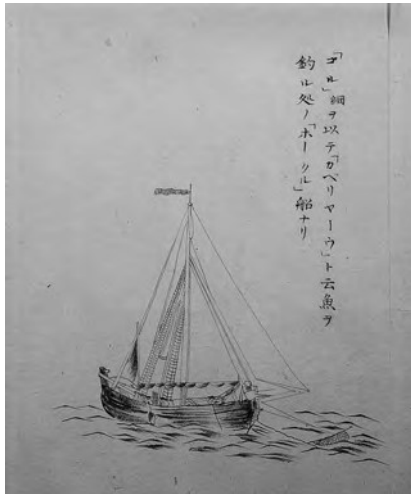 「ゴル」網ヲ以テ「カベリヤーウ」ト云魚ヲ
釣ル処ノ「ホークル」船ナリ